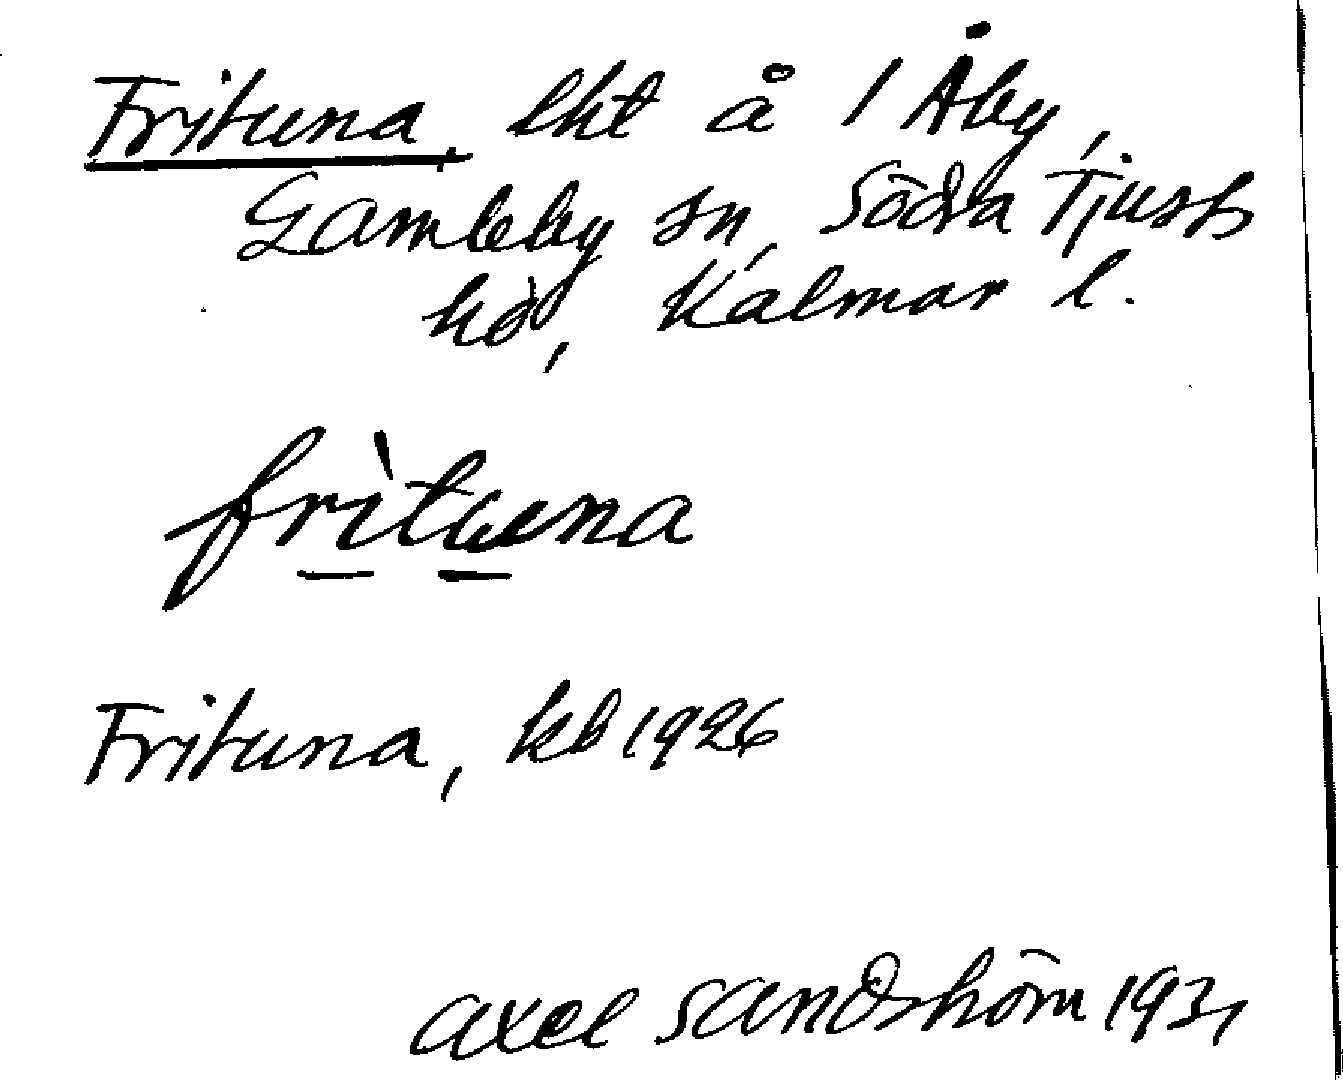 Frituna, lht å 1 Åby,
Gamleby sn, Södra Tjusts
hd, Kalmar l.
frìtuna
Frituna, kb 1926
Axel Sandström 1931